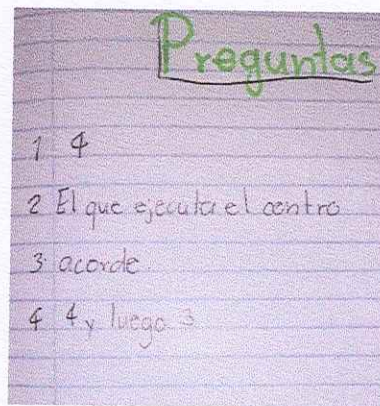 Preguntas
1 4
2 El que ejecuta el centro
3 acorde
4 4 y luego 3